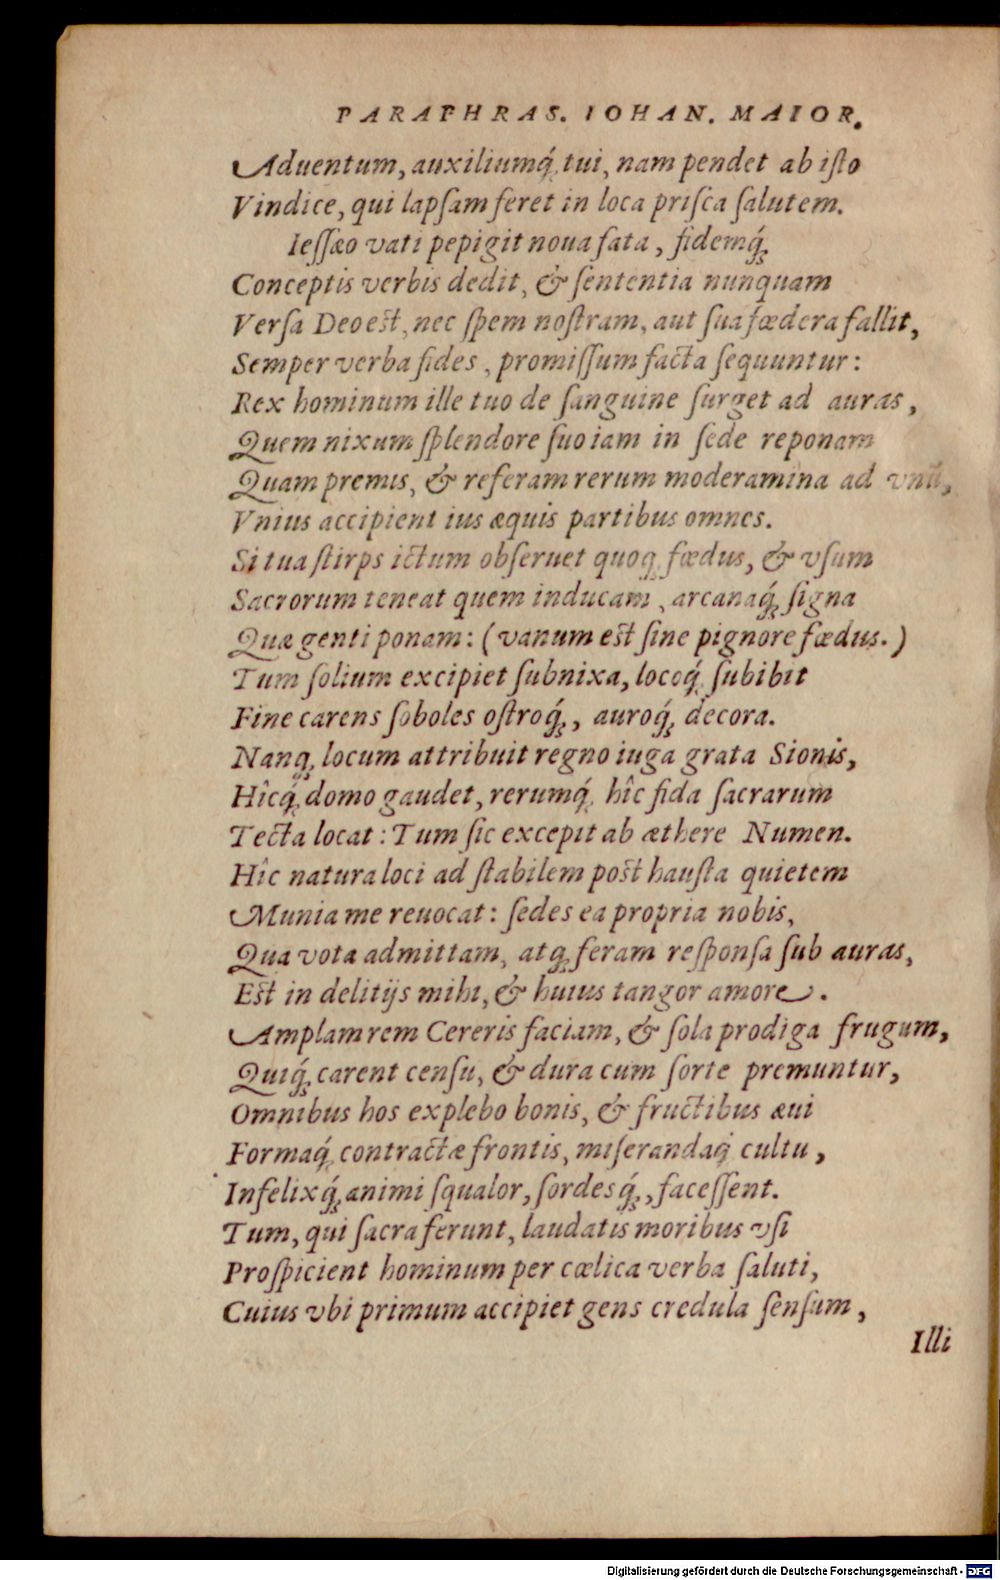 PARAPHRAS. IOHAN. MAIOR.
Aduentum, auxiliumq́; tui, nam pendet ab iſto
Vindice, qui lapſam feret in loca priſca ſalutem.
Ieſſæo vati pepigit noua fata, fidemq́;
Conceptis verbis dedit, & ſententia nunquam
Verſa Deo est, nec ſpem noſtram, aut ſua fœdera fallit,
Semper verba fides, promiſſum facta ſequuntur:
Rex hominum ille tuo de ſanguine ſurget ad auras,
Quem nixum ſplendore ſuo iam in ſede reponam
Quam premis, & referam rerum moderamina ad vnū,
Vnius accipient ius æquis partibus omnes.
Si tua ſtirps ictum obſeruet quoq; fœdus, & vſum
Sacrorum teneat quem inducam, arcanaq́; ſigna
Quæ genti ponam: (vanum est ſine pignore fœdus.)
Tum ſolium excipiet ſubnixa, locoq́; ſubibit
Fine carens ſoboles oſtroq́;, auroq́; decora.
Nanq; locum attribuit regno iuga grata Sionis,
Hîcq́; domo gaudet, rerumq́; hîc fida ſacrarum
Tecta locat: Tum ſic excepit ab æthere Numen.
Hîc natura loci ad ſtabilem post hauſta quietem
Munia me reuocat: ſedes ea propria nobis,
Qua vota admittam, atq; feram reſponſa ſub auras,
Est in delitijs mihi, & huius tangor amore.
Amplam rem Cereris faciam, & ſola prodiga frugum,
Quiq́; carent cenſu, & dura cum ſorte premuntur,
Omnibus hos explebo bonis, & fructibus æui
Formaq́; contractæ frontis, miſerandaq́; cultu,
Infelixq́; animi ſqualor, ſordesq́;, faceſſent.
Tum, qui ſacra ferunt, laudatis moribus vſi
Proſpicient hominum per cœlica verba ſaluti,
Cuius vbi primum accipiet gens credula ſenſum,
Illi
Digitalisierung gefördert durch die Deutsche Forschungsgemeinschaft - DFG